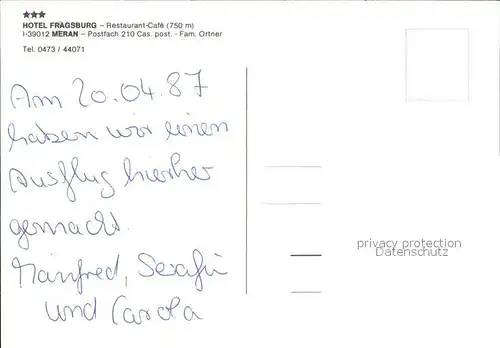 ★★★
HOTEL FRAGSBURG – Restaurant-Café (750 m)
I-39012 MERAN – Postfach 210 Cas. post. - Fam. Ortner
Tel. 0473 / 44071
Am 20.04.87
haben wir einen
Ausflug hierher
gemacht.
Manfred, Serafin
und Carola
privacy protection
Datenschutz